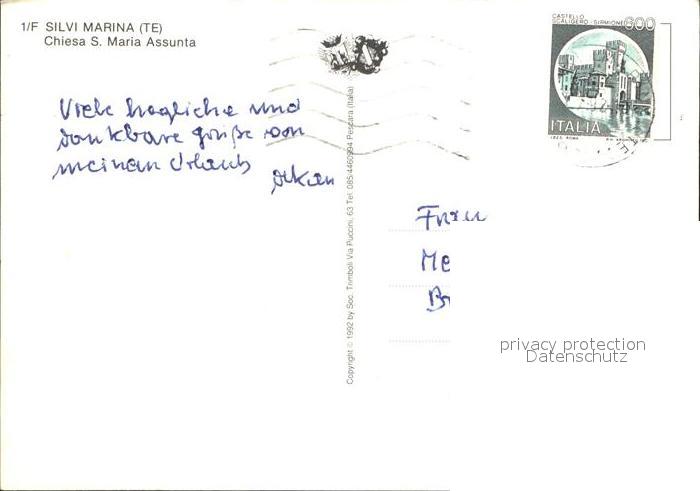 1/F SILVI MARINA (TE)
Chiesa S. Maria Assunta
CASTELLO
SCALIGERO - SIRMIONE
600
ITALIA
I.P.Z.S. ROMA
Viele herzliche und
dankbare Grüße von
meinem Urlaub
Copyright © 1992 by Soc. Trimboli Via Puccini, 63 Tel. 085/4460994 Pescara (Italia)
Frau
Me
Br
privacy protection
Datenschutz